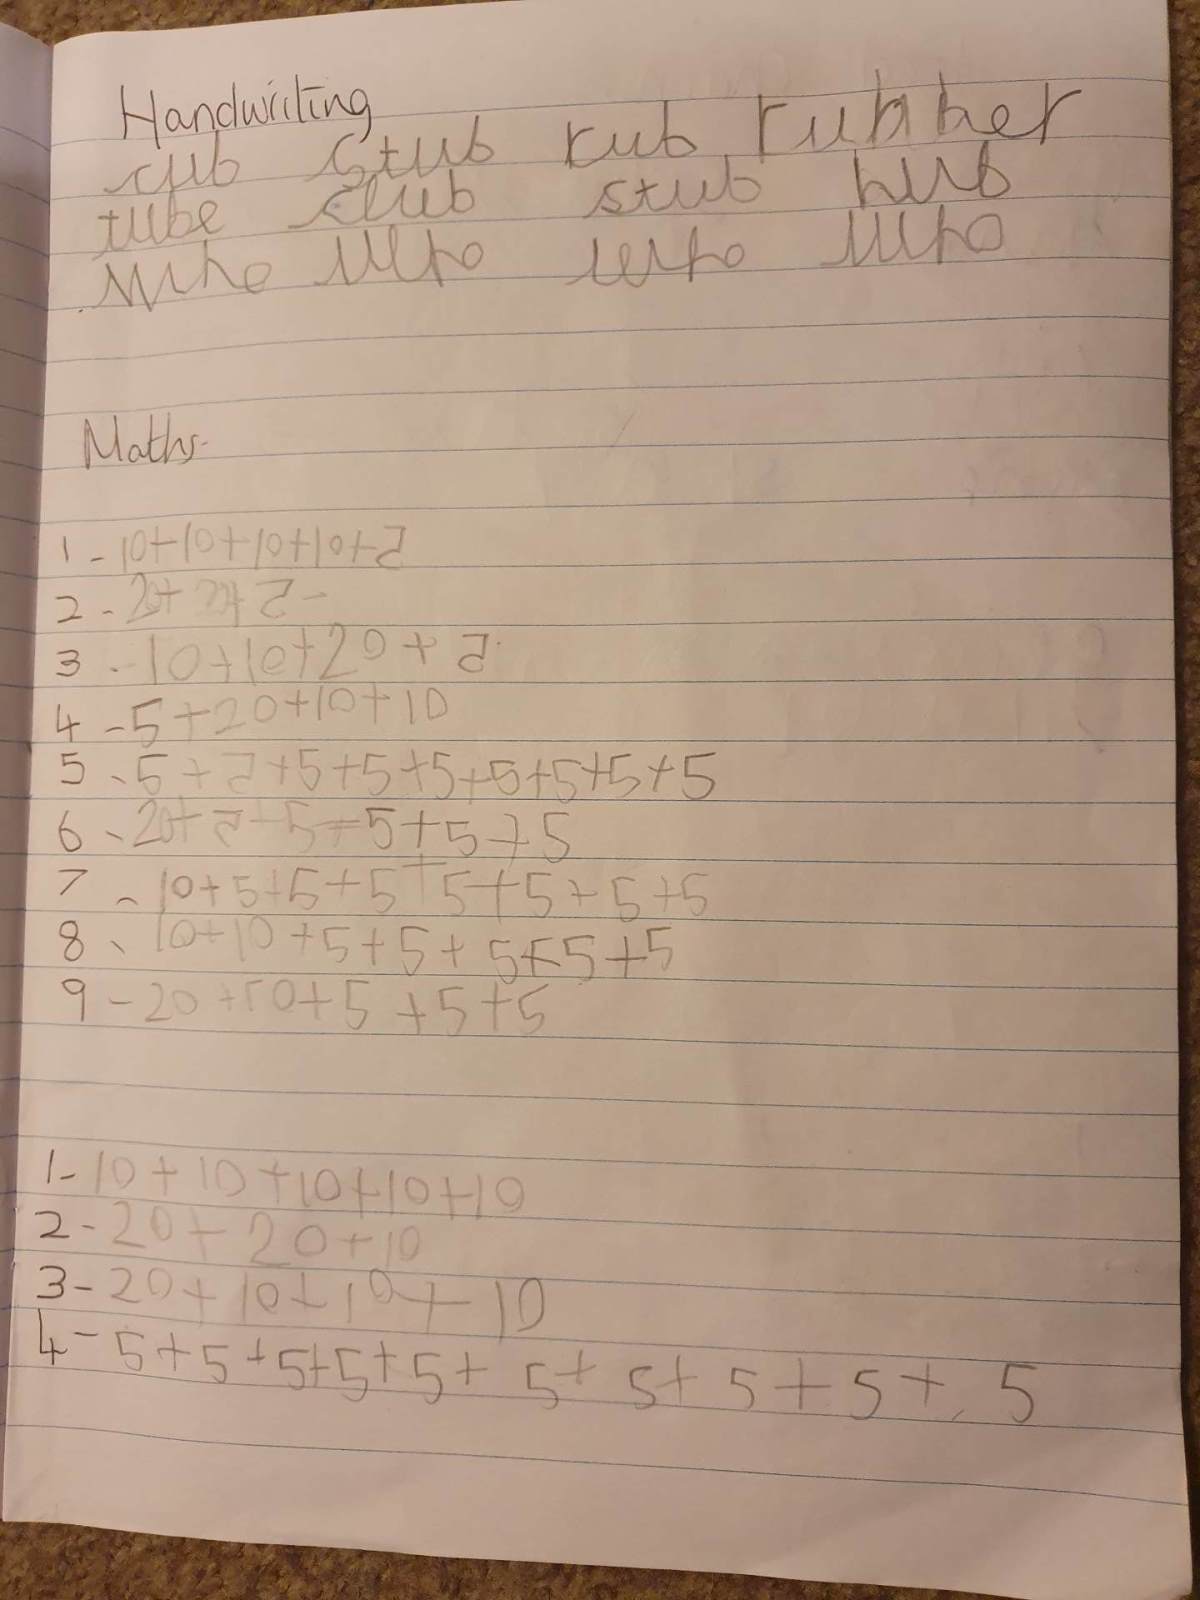 Handwriting
cub stub rub rubber
tube club stub hub
who who who who
Maths
1 - 10+10+10+10+5
2 - 20+20+5
3 - 10+10+20+5
4 - 5+20+10+10
5 - 5+5+5+5+5+5+5+5+5
6 - 20+5+5+5+5+5
7 - 10+5+5+5+5+5+5+5
8 - 10+10+5+5+5+5+5
9 - 20+10+5+5+5
1 - 10+10+10+10+10
2 - 20+20+10
3 - 20+10+10+10
4 - 5+5+5+5+5+5+5+5+5+5